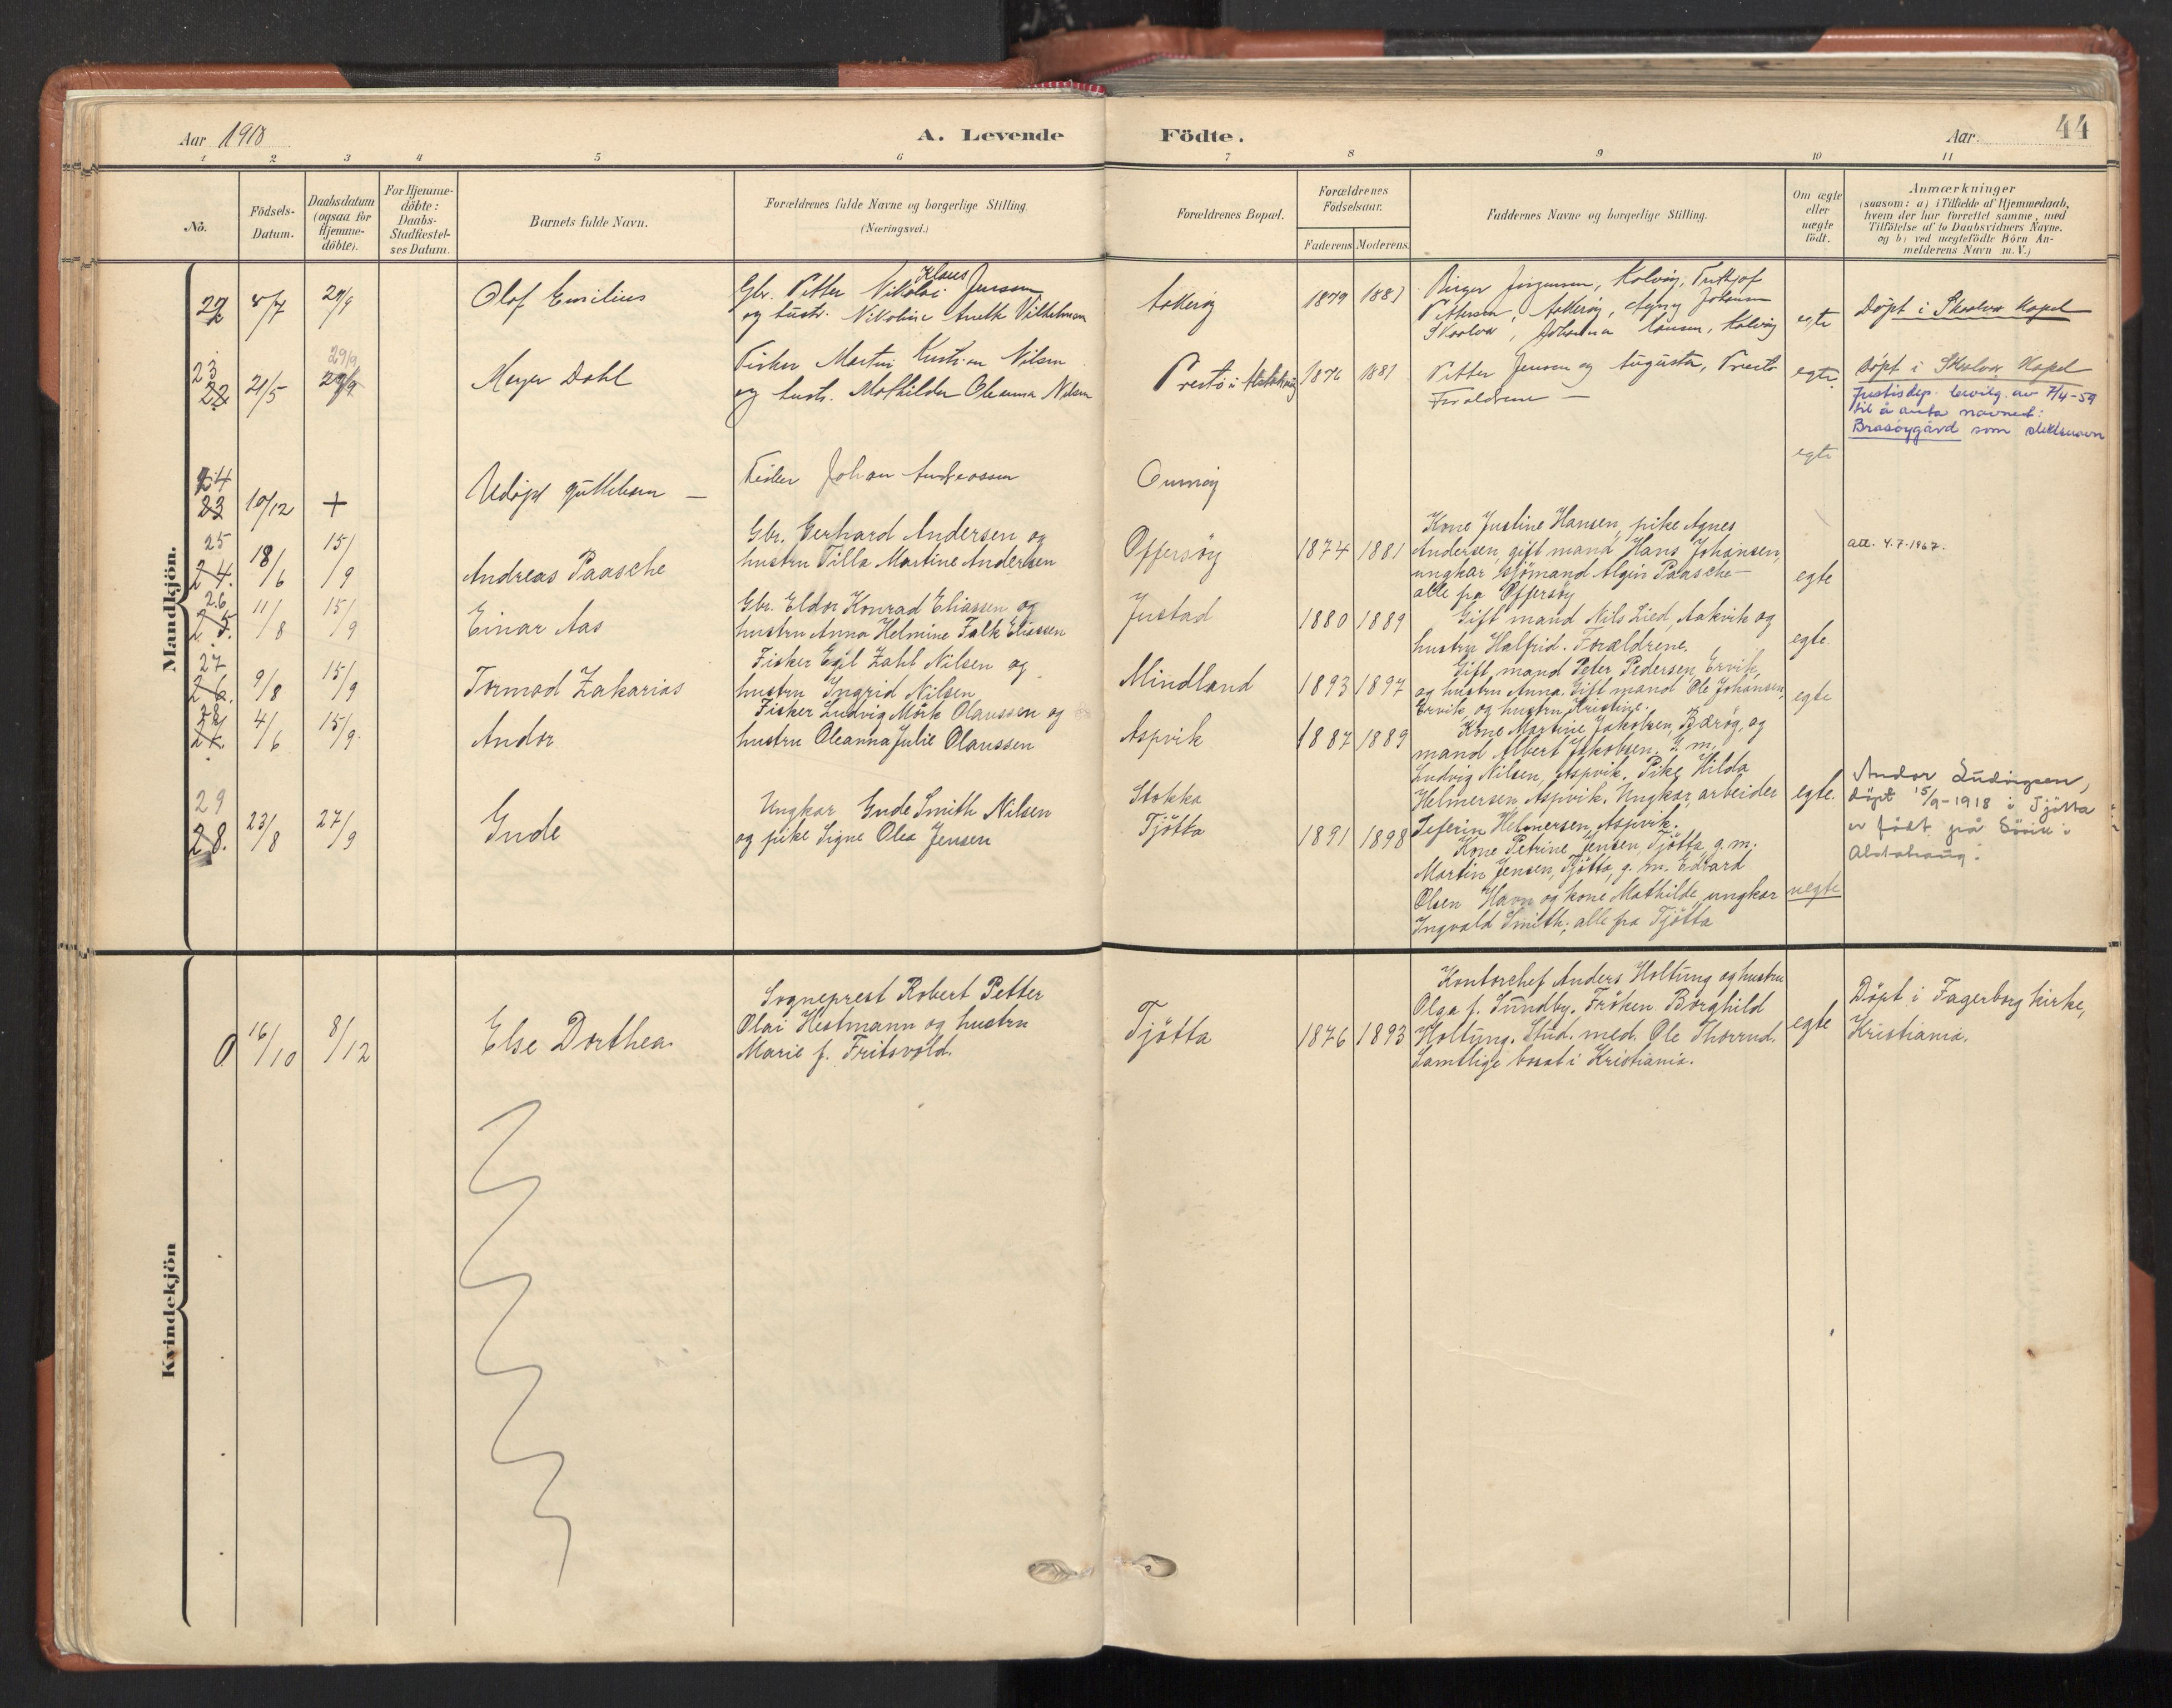 Aar 1918
A. Levende
Födte.
Aar
44
1 2 3 4 5 6 7 8 9 10 11
No.
Födsels-
Datum.
Daabsdatum
(ogsaa for
Hjemme-
döbte).
For Hjemme-
döbte:
Daabs-
Stadfæstel-
ses Datum.
Barnets fulde Navn.
Forældrenes fulde Navne og borgerlige Stilling
(Næringsvei.)
Forældrenes Bopæl.
Forældrenes
Födselsaar.
Faderens Moderens
Faddernes Navne og borgerlige Stilling.
Om ægte
eller
uægte
födt.
Anmærkninger
(saasom: a) i Tilfælde af Hjemmedaab,
hvem der har forrettet samme, med
Tilföielse af to Daabsvidners Navne.
og b) ved uægtefödte Börn An-
melderens Navn m.V.)
Mandkjön.
22 8/7 29/9
Olof Emilius
Klaus
Gbr. Petter Nikolai Jensen
og hustr. Nikoline Anette Vilhelmsen
1879 1883
Birger Jörgensen, Kalvöy, Fritkjof
Pettersen, Johansen
Skaalvær, Johanna Hansen, Kalvöy
egte
Döpt i Skaalvær Kapel
23
22 21/5 29/9
29/9
Meyer Dahl
Fisker Martin Kristian Nilsen
og hustr. Mathilde Oleanna Nilsen
Prestö i Alstahaug
1876 1881
Petter Jensen og Augusta, Prestö
Foraldrene —
egte.
Döpt i Skaalvær Kapel
Justisdep. bevilg. av 7/4-59
til å anta navnet:
Brasøygård som slektsnavn
24
23 10/12 +
Udöpt guttebarn —
Fisker Johan Andreassen
egte
25
24. 18/6 15/9
Andreas Paasche
Gbr. Gerhard Andersen og
hustru Tilla Martine Andersen
Offersöy
1874 1881
Kone Justine Hansen, pike Agnes
Andersen, gift mand Hans Johansen,
ungkar sjömand Algin Paasche—
alle fra Offersöy
egte
att. 4.7.1967.
26
25. 11/8 15/9
Einar Aas
Gbr. Eldor Konrad Eliassen og
hustru Anna Helmine Falk Eliassen
Justad
1880 1889
Gift mand Nils Lied, Aakvik og
hustru Halfrid. Forældrene.
egte.
27
26. 9/8 15/9
Tormod Zakarias
Fisker Egil Zahl Nilsen og
hustru Ingrid Nilsen
Mindland
1893 1897
Gift mand Peter Pedersen, Ervik,
og hustru Anna. Gift mand Ole Johansen,
Ervik, og hustru Kristine.
egte
28
27. 4/6 15/9.
Andor
Fisker Ludvig Mörk Olaussen og
hustru Oleanna Julie Olaussen
Aspvik
1887 1889
Kone Martine Jakobsen, Bæröy, og
mand Albert Jakobsen. G. m.
Ludvig Nilsen, Aspvik. Pike Hilda
Helmersen, Aspvik. Ungkar, arbeider
Seferin Helmersen, Aspvik.
egte.
Andor Ludvigsen,
döpt 15/9-1918 i Tjötta
er födt på Sövik i
Alstahaug.
29
28. 23/8 27/9
Gude
Ungkar Gude Smith Nilsen
og pike Signe Olea Jensen
Stokka
Tjötta
1891 1898
Kone Petrine Jensen, Tjötta, g. m.
Martin Jensen, Tjötta, g. m. Edvard
Olsen Havn og kone Mathilde, ungkar
Ingvald Smith; alle fra Tjötta
uegte
Kvindekjön
0 16/10 8/12
Else Dorthea
Sogneprest Robert Petter
Olai Hestmann og hustru
Marie f. Fritsvold.
Tjötta
1876 1893
Kontorchef Anders Holtung og hustru
Olga f. Sundby. Fröken Borghild
Holtung. Stud. med. Ole Thorrud.
Samtlige bosat i Kristiania.
egte
Döpt i Fagerborg kirke,
Kristiania.